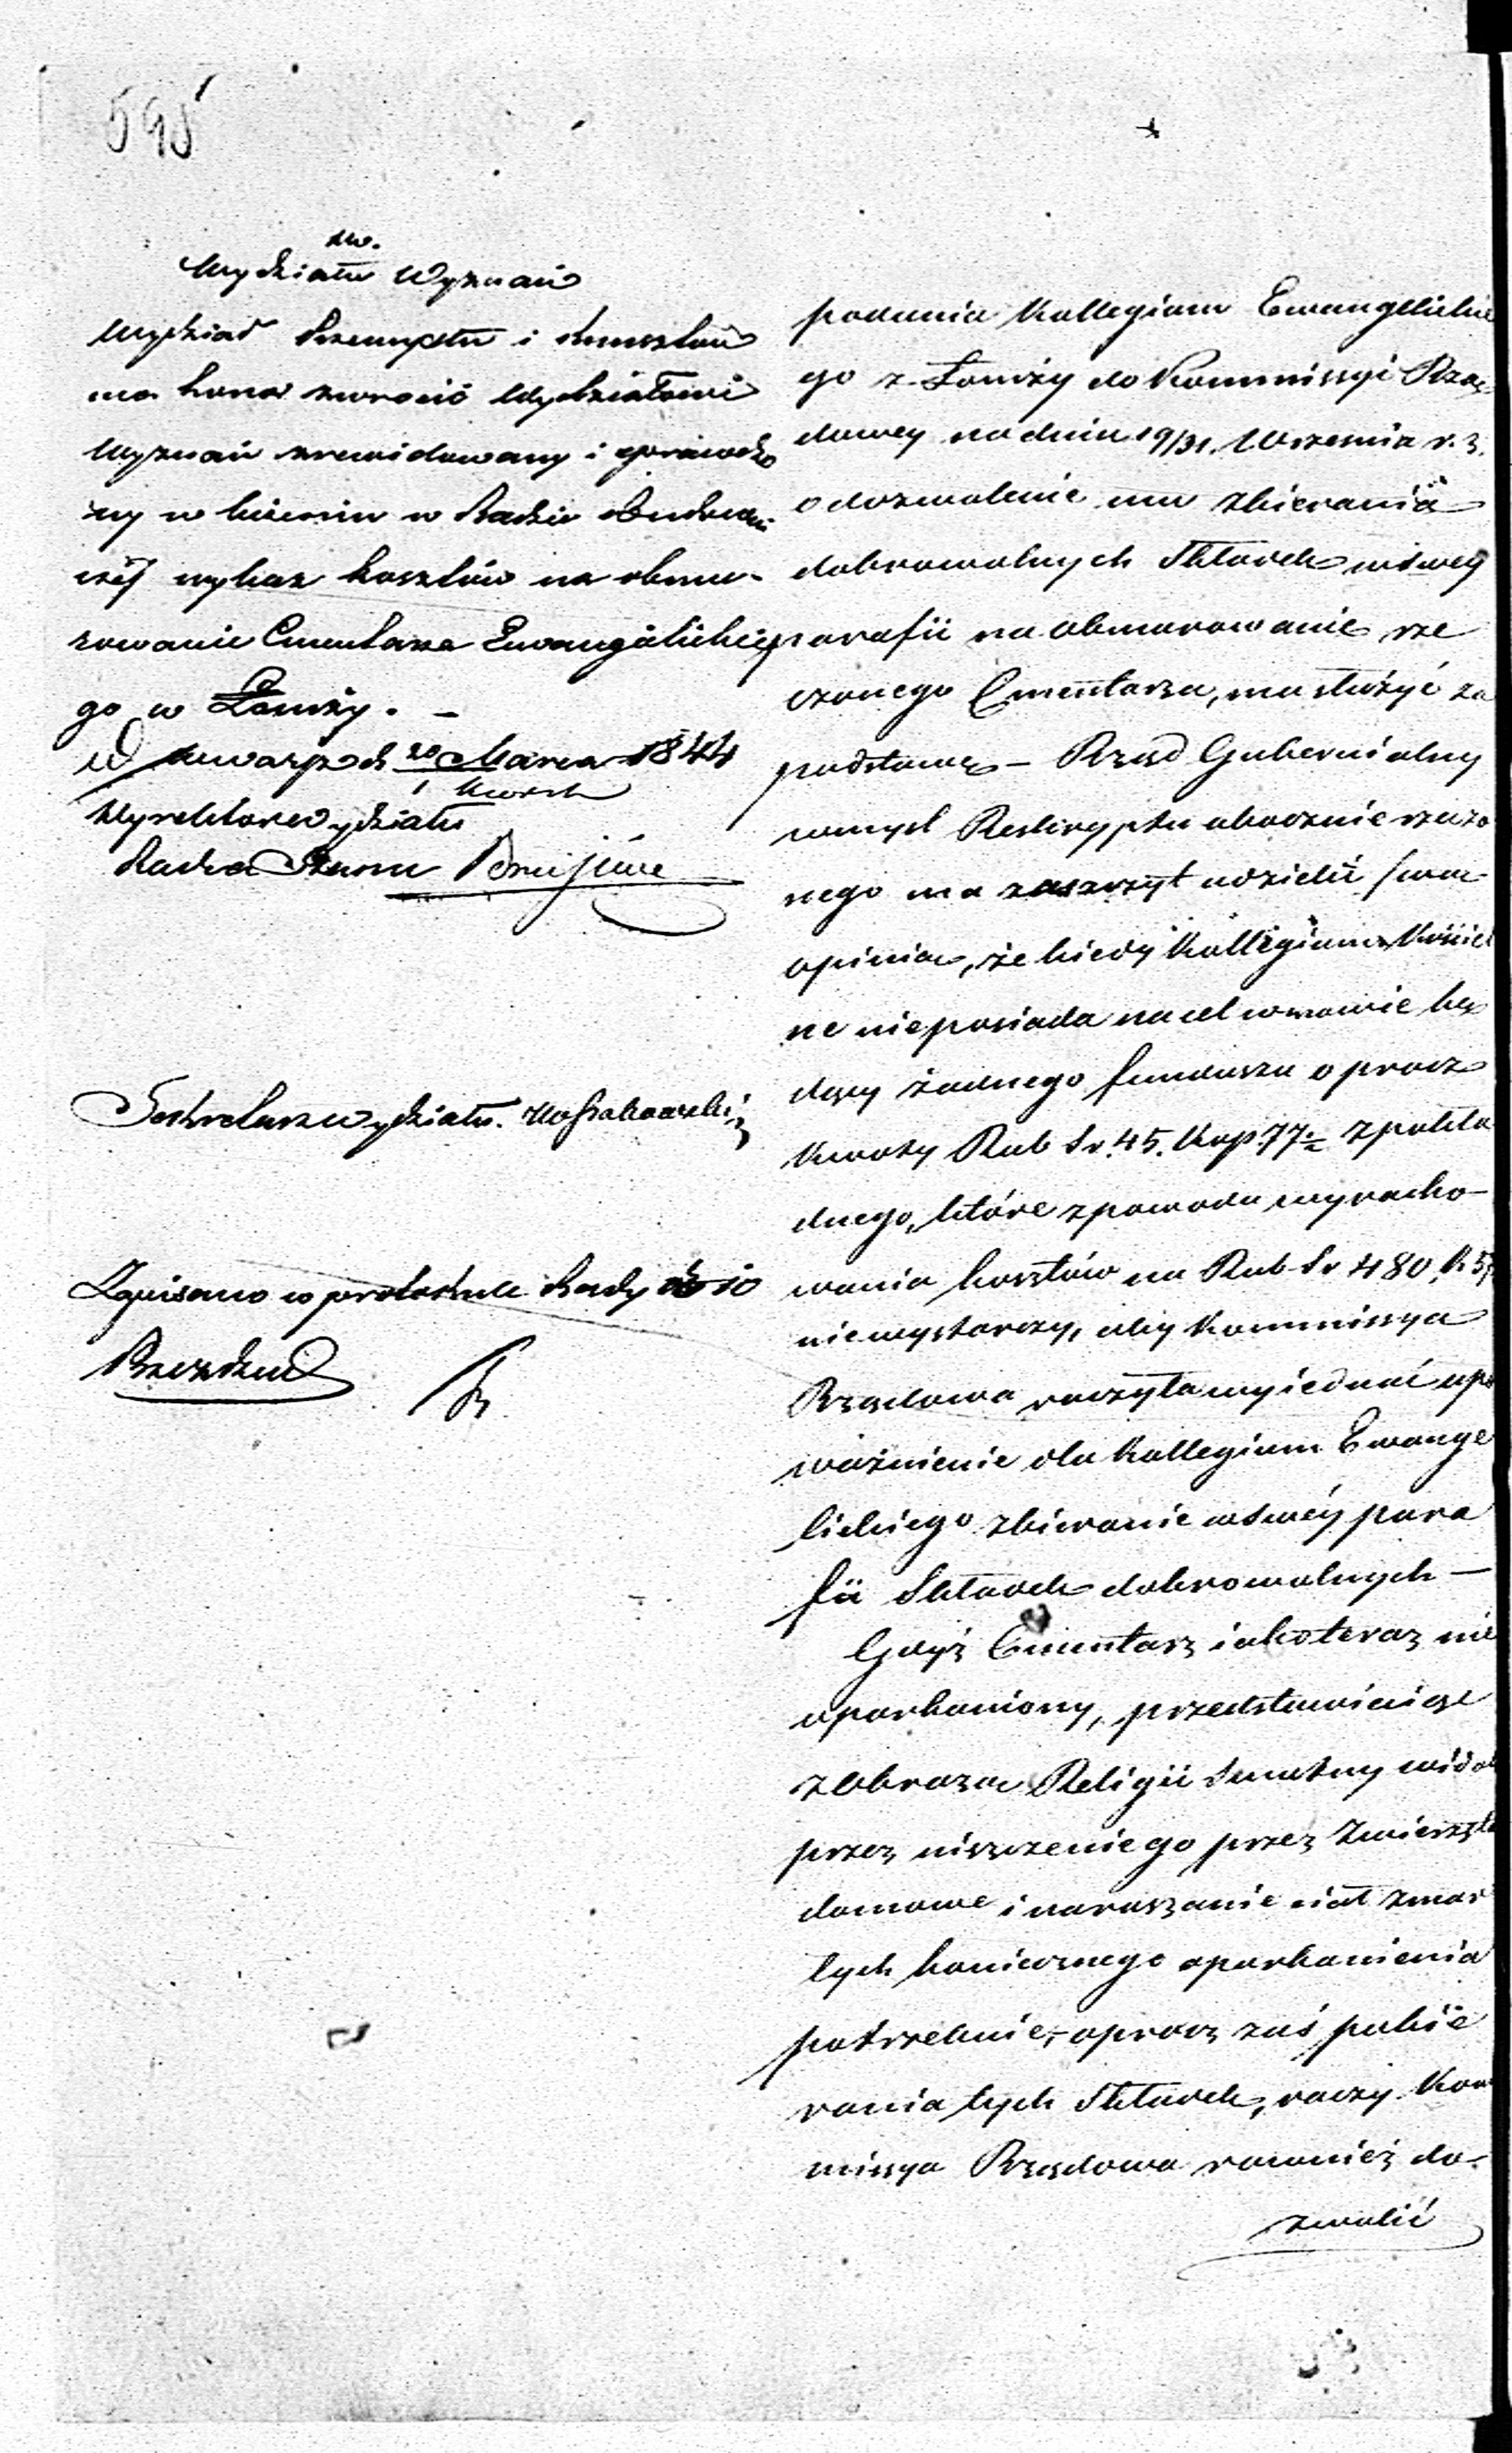 595
do.
Wydziału Wyznań
Wydział Przemysłu i Kunsztów
ma honor zwrócić Wydziałowi
Wyznań zrewidowany i sprawdzo
ny w biórze w Radzie Budowni
czéj wykaz kosztów na obmu-
rowanie Cmentarza Ewangelickie
go w Łomży. –
w Warszawie d. 20 Marca 1844
1 Kwiet
Dyrektor Wydziału
Radca Stanu
Sekretarz Wydziału.
Zapisano w protokule Rady
podania Kollegium Ewangelickie
go z Łomży do Kommissyi Rzą-
dowey na dniu 19/31. Września r. z.
o dozwolenie mu zbierania
dobrowolnych Składek w swey
parafii na obmurowanie rze
czonego Cmentarza, ma służyć za
podstawę – Rząd Gubernialny
wmyśl Reskryptu obocznie rzeczo
nego ma zaszczyt udzielić swą
opinią, że kiedy Kollegium Kościel
ne nieposiada na cel w mowie bę
dący żadnego funduszu oprócz
kwoty Rub Sr. 45. Kop 77. z pokła
dnego, które z powodu wyracho-
wania kosztów na Rub Sr 480. K 5
niewystarczy, aby Kommissya
Rządowa raczyła wyiednać upo
ważnienie dla Kollegium Ewange
lickiego zbieranie w swéy para
fii Składek dobrowolnych –
Gdyż Cmentarz iako teraz nie
oparkaniony, przedstawiaiąc
z obrazą Religii smutny widok
przez niszczenie go przez Zwierzęta
domowe i naruszanie ciał zmar
łych koniecznego oparkanienia
potrzebuie, oprócz zaś pobie
rania tych Składek, raczy Kom
missya Rządowa również do-
zwolić